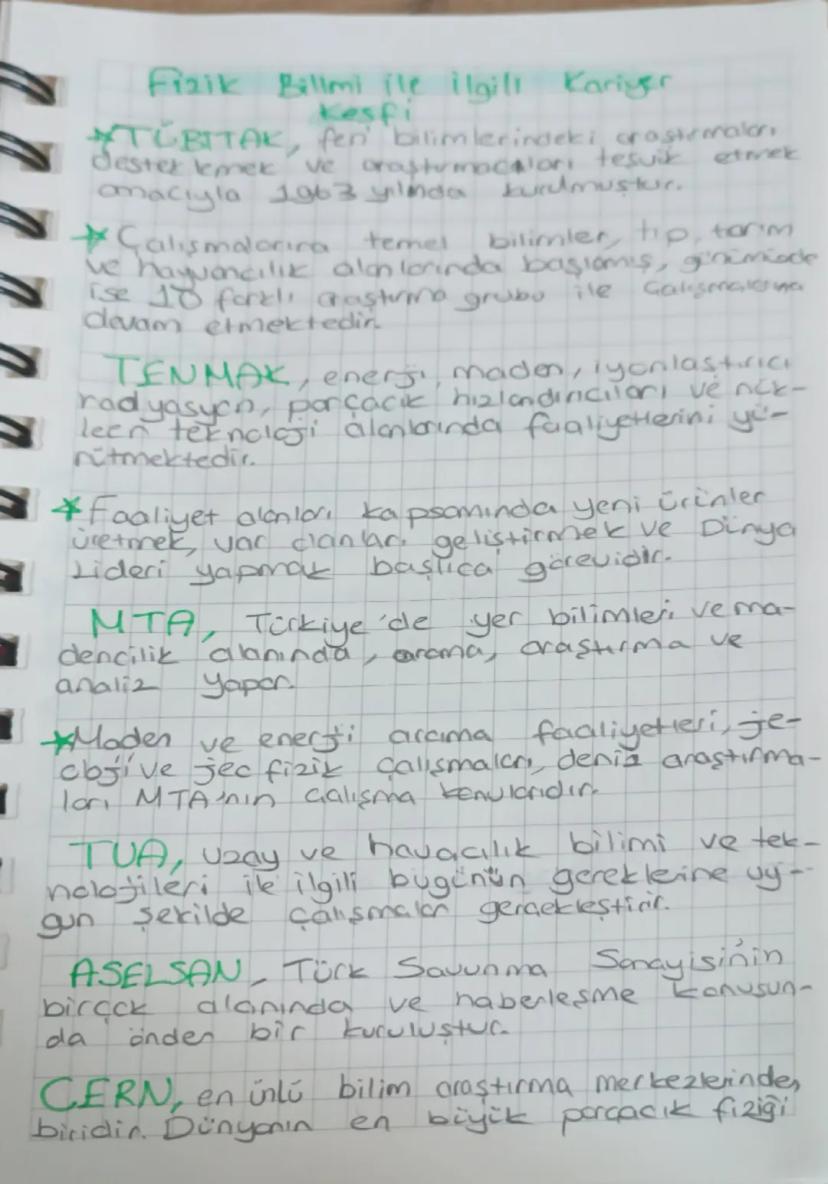 Fizik Bilimi ile ilgili Kariyer
Kesfi
*TÜBİTAK, fen bilimlerindeki araştırmaları
desteklemek ve araştırmacıları teşvik etmek
amacıyla 1963 yılında kurulmuştur.
*Çalışmalarına temel bilimler, tıp, tarım
ve hayvancılık alanlarında başlamış, günümüzde
ise 10 farklı araştırma grubu ile çalışmalarına
devam etmektedir.
TENMAK, enerji, maden, iyonlaştırıcı
radyasyon, parçacık hızlandırıcıları ve nük-
leer teknoloji alanlarında faaliyetlerini yü-
rütmektedir.
*Faaliyet alanları kapsamında yeni ürünler
üretmek, var olanları geliştirmek ve Dünya
Lideri yapmak başlıca görevidir.
MTA, Türkiye'de yer bilimleri ve ma-
dencilik alanında, arama, araştırma ve
analiz yapar.
*Maden ve enerji arama faaliyetleri, je-
oloji ve jeofizik çalışmaları, deniz araştırma-
ları MTA'nın çalışma konularıdır.
TUA, uzay ve havacılık bilimi ve tek-
nolojileri ile ilgili bugünün gereklerine uy-
gun şekilde çalışmaları gerçekleştirir.
ASELSAN, Türk Savunma Sanayisinin
birçok alanında ve haberleşme konusun-
da önder bir kuruluştur.
CERN, en ünlü bilim araştırma merkezlerinden
biridir. Dünyanın en büyük parçacık fiziği